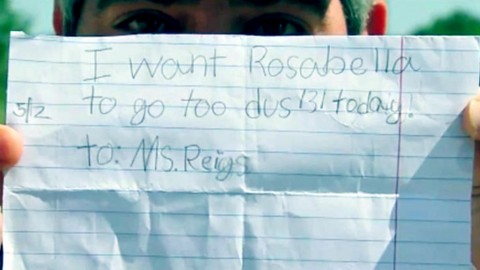 I want Rosabella
5/2 to go too dus 131 today!
to: Ms. Reigs